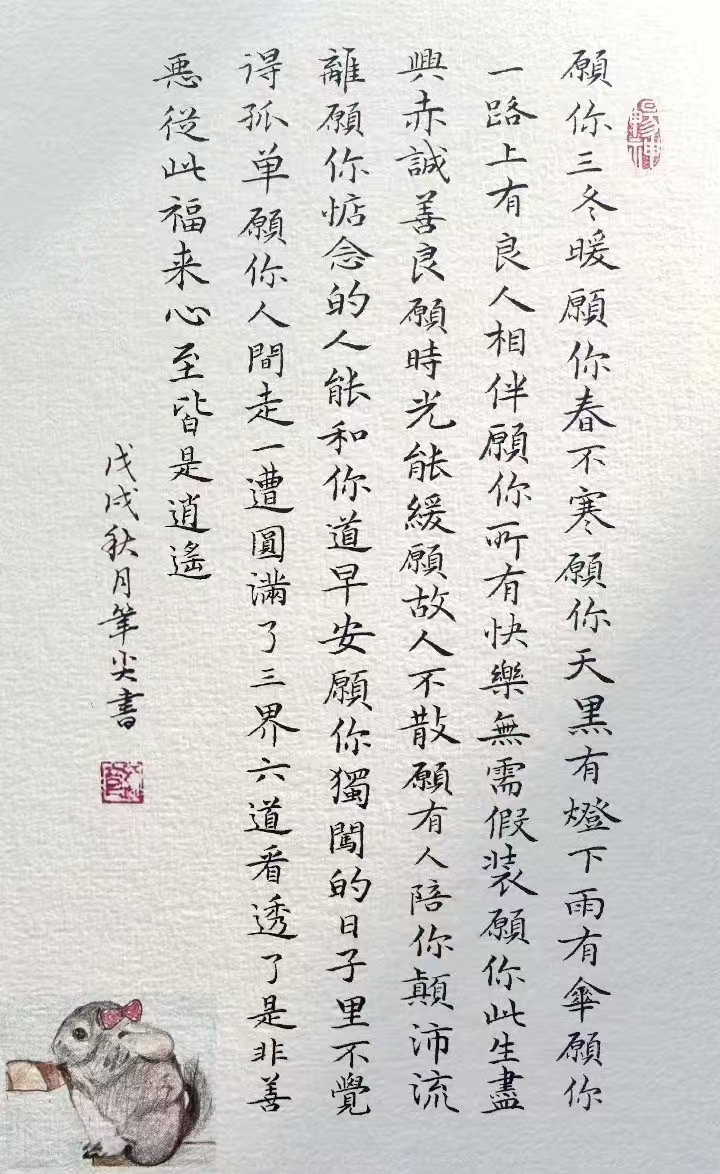 願你三冬暖願你春不寒願你天黑有燈下雨有傘願你
一路上有良人相伴願你所有快樂無需假装願你此生盡
興赤誠善良願時光能緩願故人不散願有人陪你顛沛流
離願你惦念的人能和你道早安願你獨闖的日子里不覺
得孤单願你人間走一遭圓滿了三界六道看透了是非善
惡從此福来心至皆是逍遙
戊戌秋月笔尖書